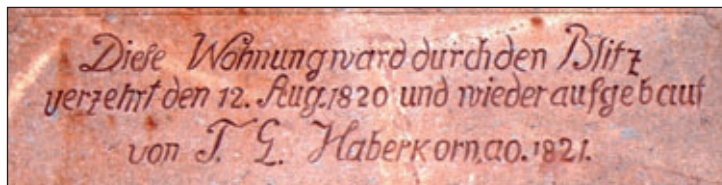 Dieſe Wohnung ward durch den Blitz
verzehrt den 12. Aug. 1820 und wieder aufgebaut
von T. G. Haberkorn ao. 1821.